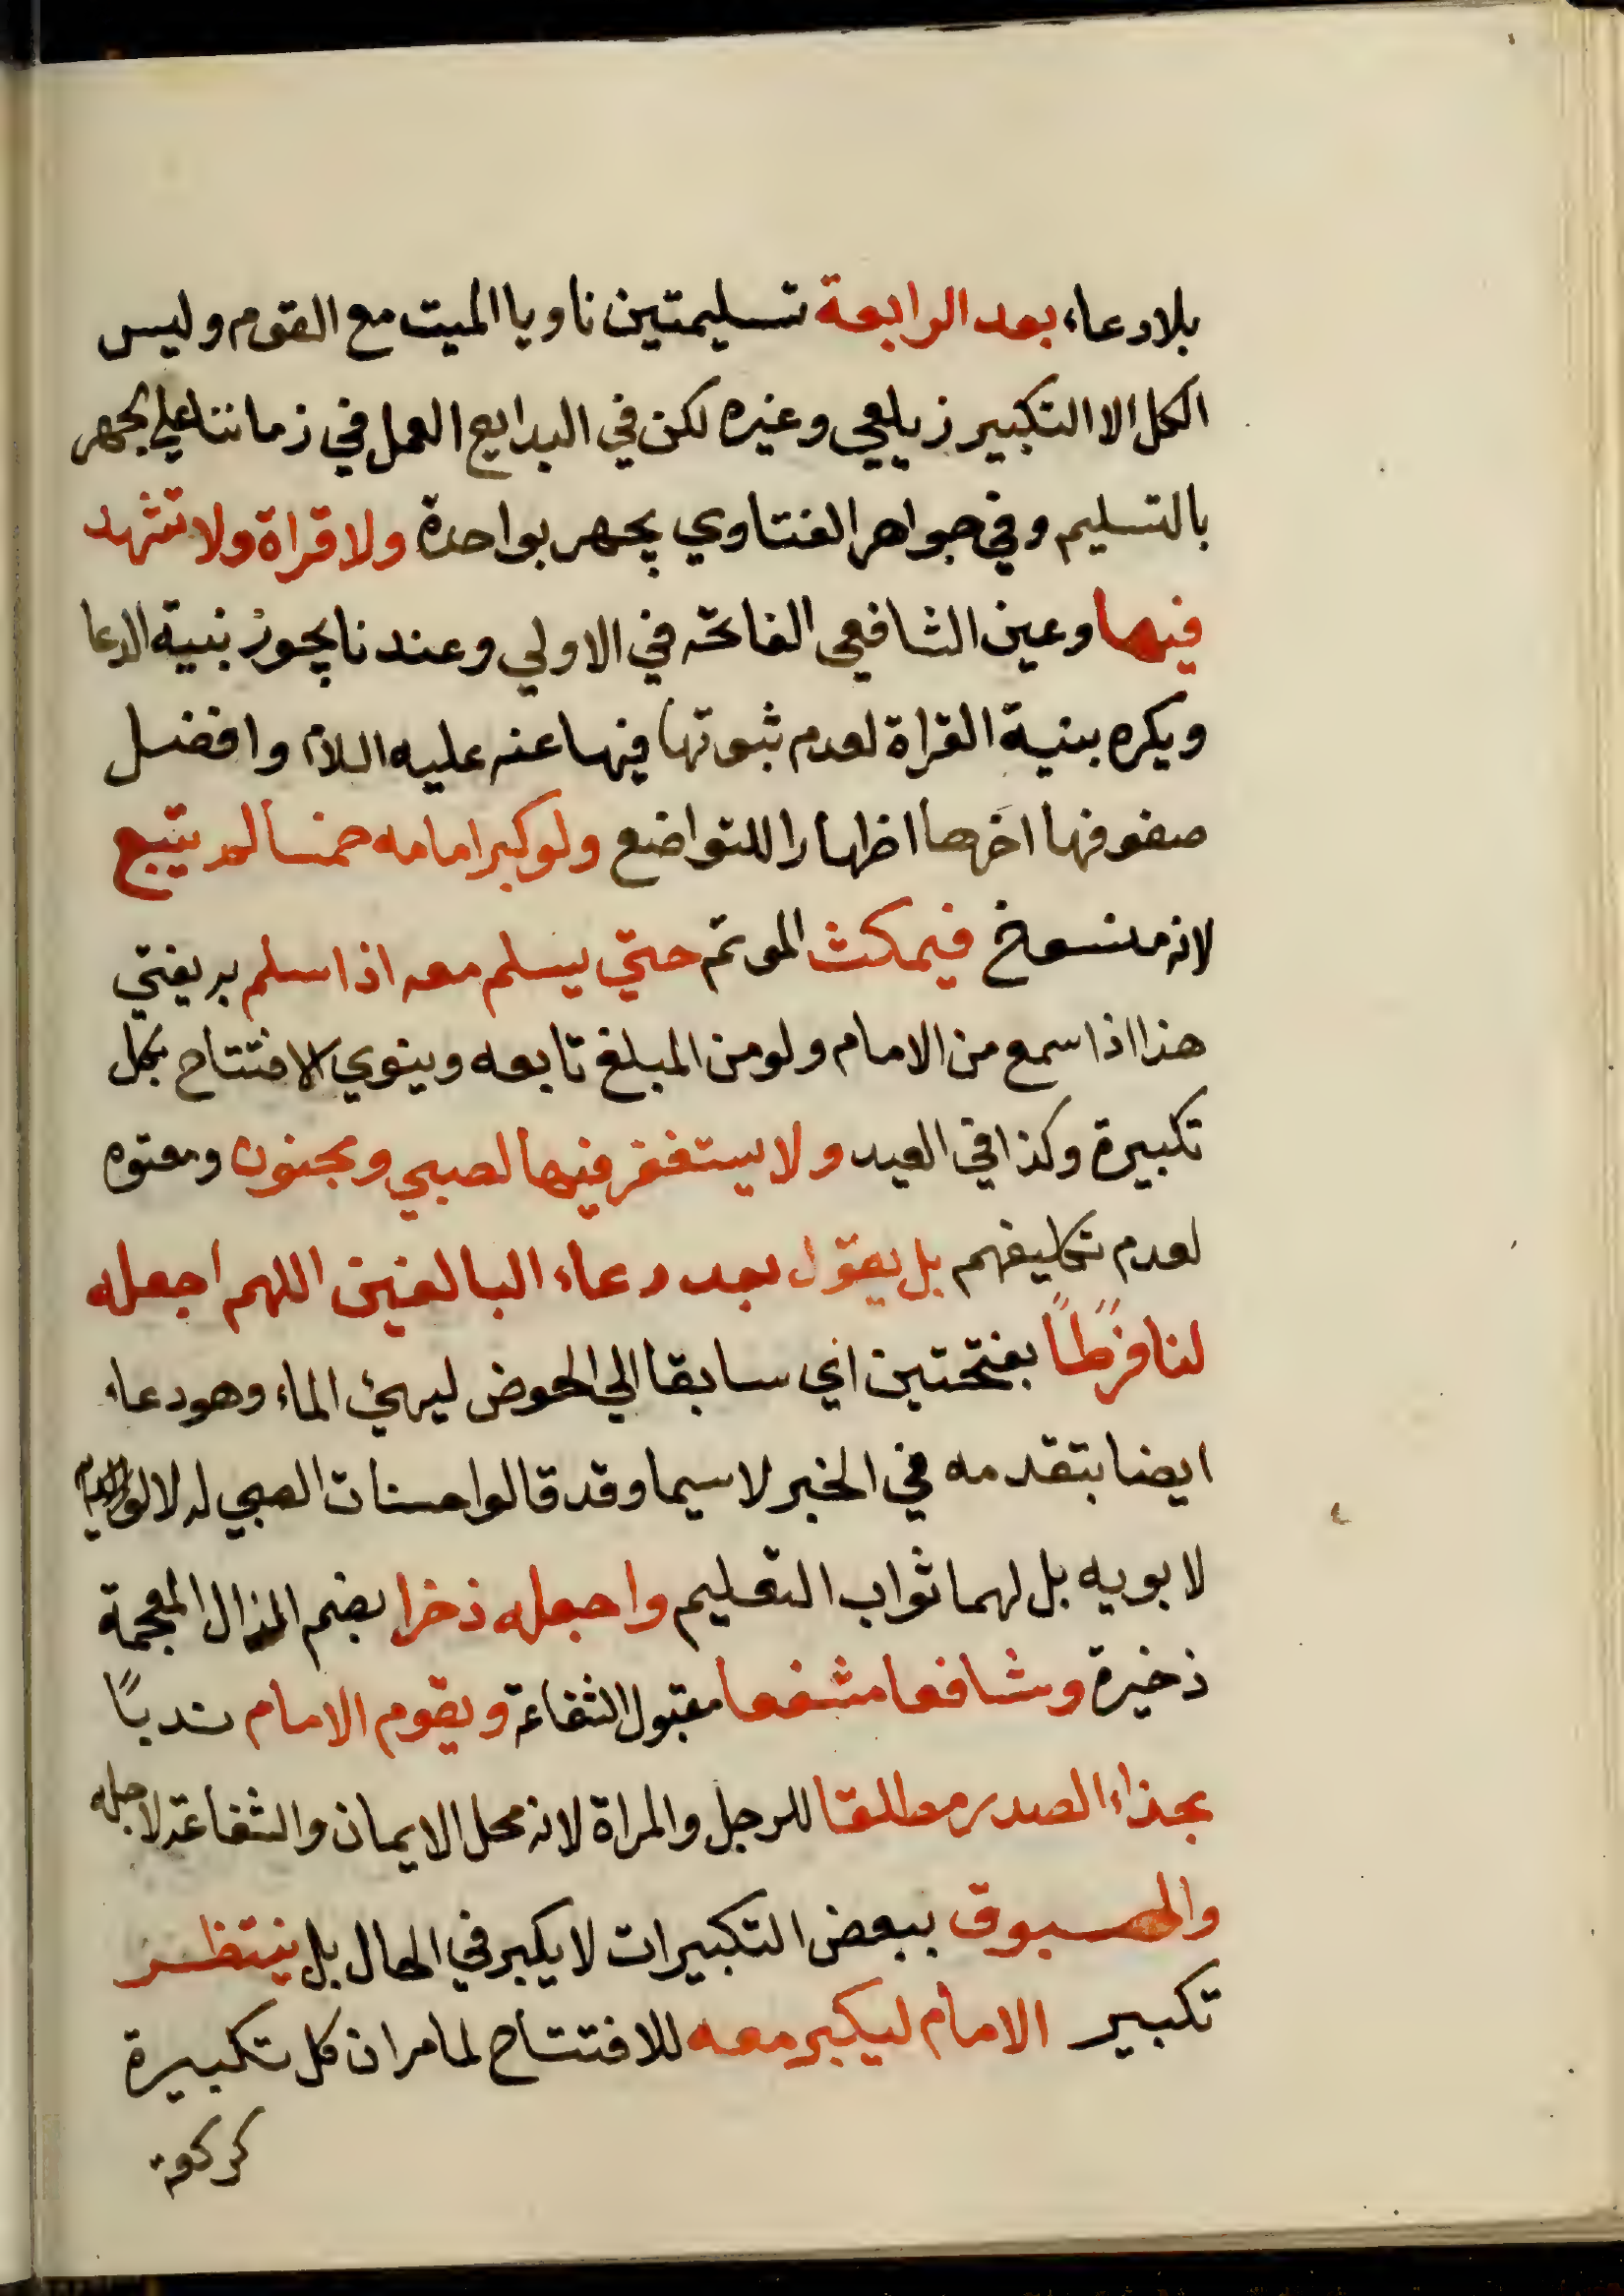 بلا دعاء بعد الرابعة تسليمتين ناويا الميت مع القوم وليس
الكل الا التكبير زيلعي وغيره لكن في البدايع العمل في زماننا علي الجهر
بالتسليم وفي جواهر الفتاوي يجهر بواحدة ولا قراة ولا تشهد
فيها وعين الشافعي الفاتحه في الاولي وعندنا يجوز بنية الدعا
ويكره بنية القراة لعدم ثبوتها فيها عنه عليه اللام وافضل
صفوفها اخرها اظهارا للتواضع ولو كبر امامه خمسا لم يتبع
لانه منسوخ فيمكث الموتم حتي يسلم معه اذا سلم به يفتي
هذا اذا سمع من الامام ولو من المبلغ تابعه وينوي الافتتاح بكل
تكبيرة وكذا في العيد ولا يستغفر فيها لصبي ومجنون ومعتوه
لعدم تكليفهم بل يقول بعد دعاء البالغين اللهم اجعله
لنا فرطاً بفتحتين اي سابقا الي الحوض ليهئ الماء وهو دعاء
ايضا بتقدمه في الخير لاسيما وقد قالوا حسنات الصبي له لا
لابويه بل لهما ثواب التعليم واجعله ذخرا بضم الذال المعجمة
ذخيرة وشافعا مشفعا مقبول الشفاعة ويقوم الامام ندباً
بحذاء الصدر مطلقا للرجل والمراة لانه محل الايمان والشفاعة لاجله
والمسبوق ببعض التكبيرات لا يكبر في الحال بل ينتظر
تكبير الامام ليكبر معه للافتتاح لما مر ان كل تكبيرة
كركعة